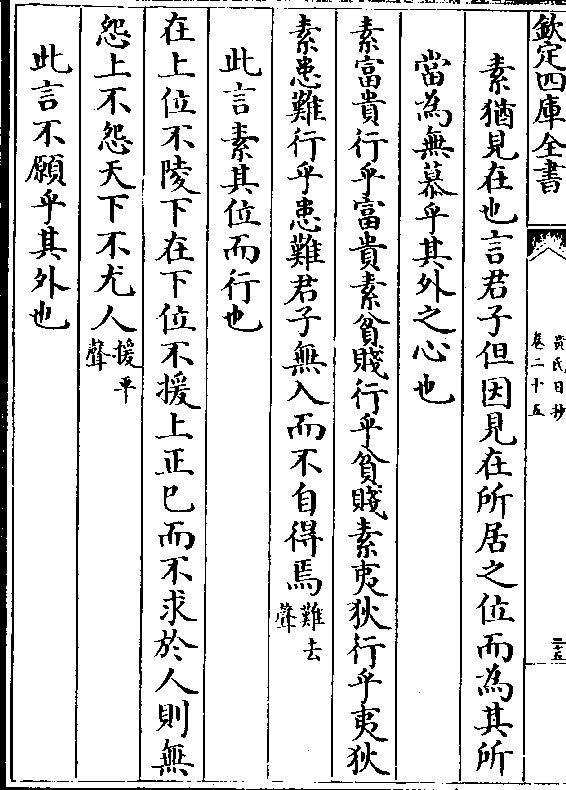 欽定四庫全書
黄氏日抄
卷二十五
二十五
素猶見在也言君子但因見在所居之位而為其所
當為無慕乎其外之心也
素富貴行乎富貴素貧賤行乎貧賤素夷狄行乎夷狄
素患難行乎患難君子無入而不自得焉難去聲
此言素其位而行也
在上位不陵下在下位不援上正已而不求於人則無
怨上不怨天下不尤人援平聲
此言不願乎其外也